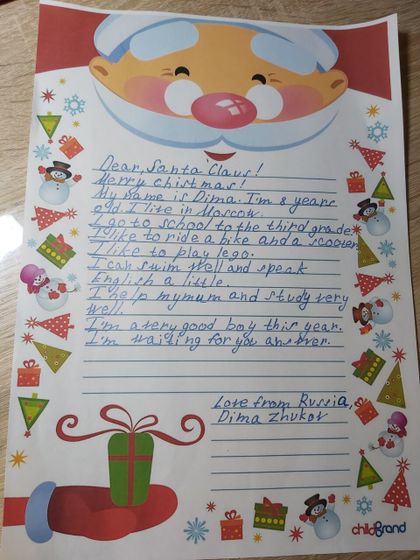 Dear, Santa Claus!
Merry Christmas!
My name is Dima. I'm 8 years
old. I live in Moscow.
I go to school to the third grade.
I like to ride a bike and a scooter.
I like to play lego.
I can swim well and speak
English a little.
I help mymum and study very
well.
I'm a very good boy this year.
I'm waiting for you answer.
Love from Russia,
Dima Zhukov
childBrand